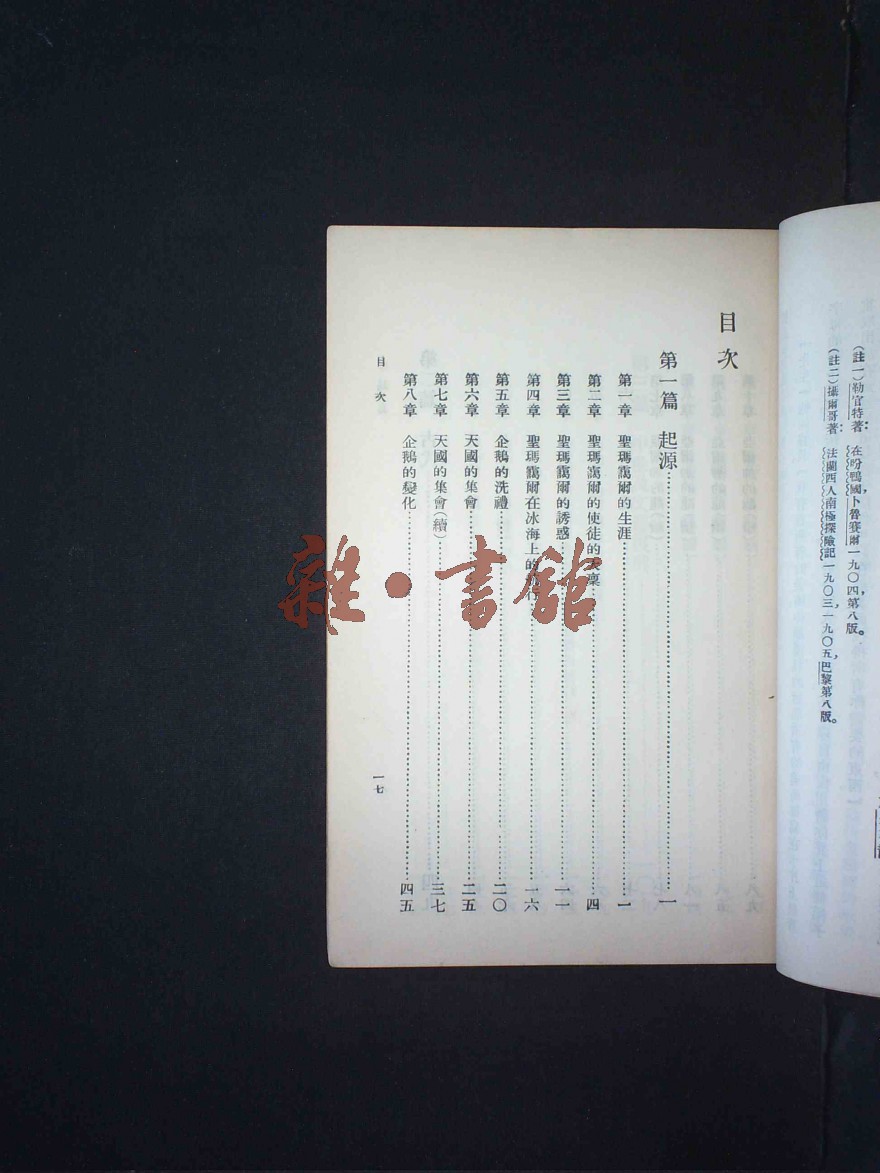 （註一）勒官特著：在吩鴨國，卜魯賽爾一九〇四，第八版。
（註二）攝爾哥著：法蘭西人南極探險記一九〇三—一九〇五，巴黎第八版。
目次
第一篇 起源……一
第一章 聖瑪靄爾的生涯……一
第二章 聖瑪靄爾的使徒的天稟……四
第三章 聖瑪靄爾的誘惑……一一
第四章 聖瑪靄爾在冰海上的旅行……一六
第五章 企鵝的洗禮……二〇
第六章 天國的集會……二五
第七章 天國的集會（續）……三七
第八章 企鵝的變化……四五
目次
一七
雜·書館